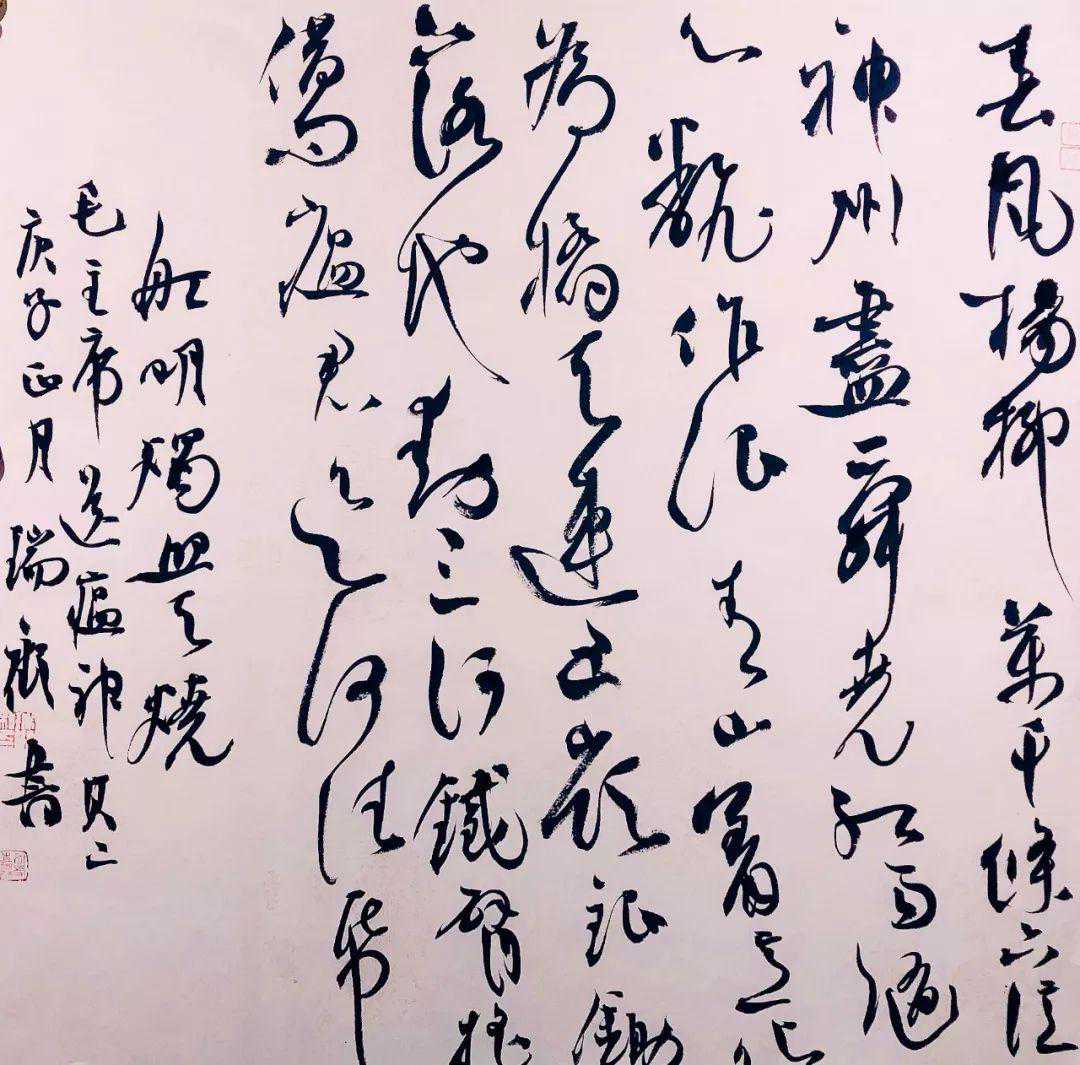 春風楊柳萬千條六億
神州盡舜堯紅雨隨
心飜作浪青山着意化
為橋天連五嶺銀鋤
落地動三河鐵臂搖
借問瘟君欲何往紙
船明燭照天燒
毛主席送瘟神其二
庚子正月瑞書